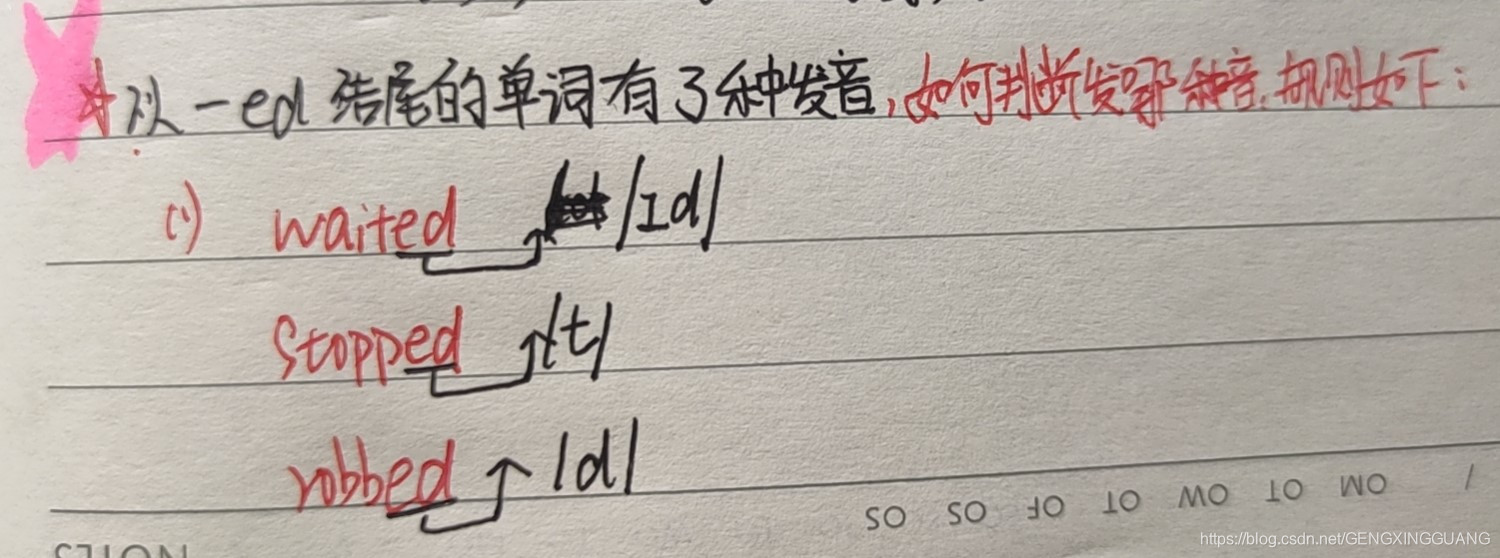 以-ed结尾的单词有3种发音,如何判断发哪种音.规则如下:
(1) waited /ɪd/
stopped /t/
robbed /d/
MO TO WO TO FO SO SO
NOTES
https://blog.csdn.net/GENGXINGGUANG